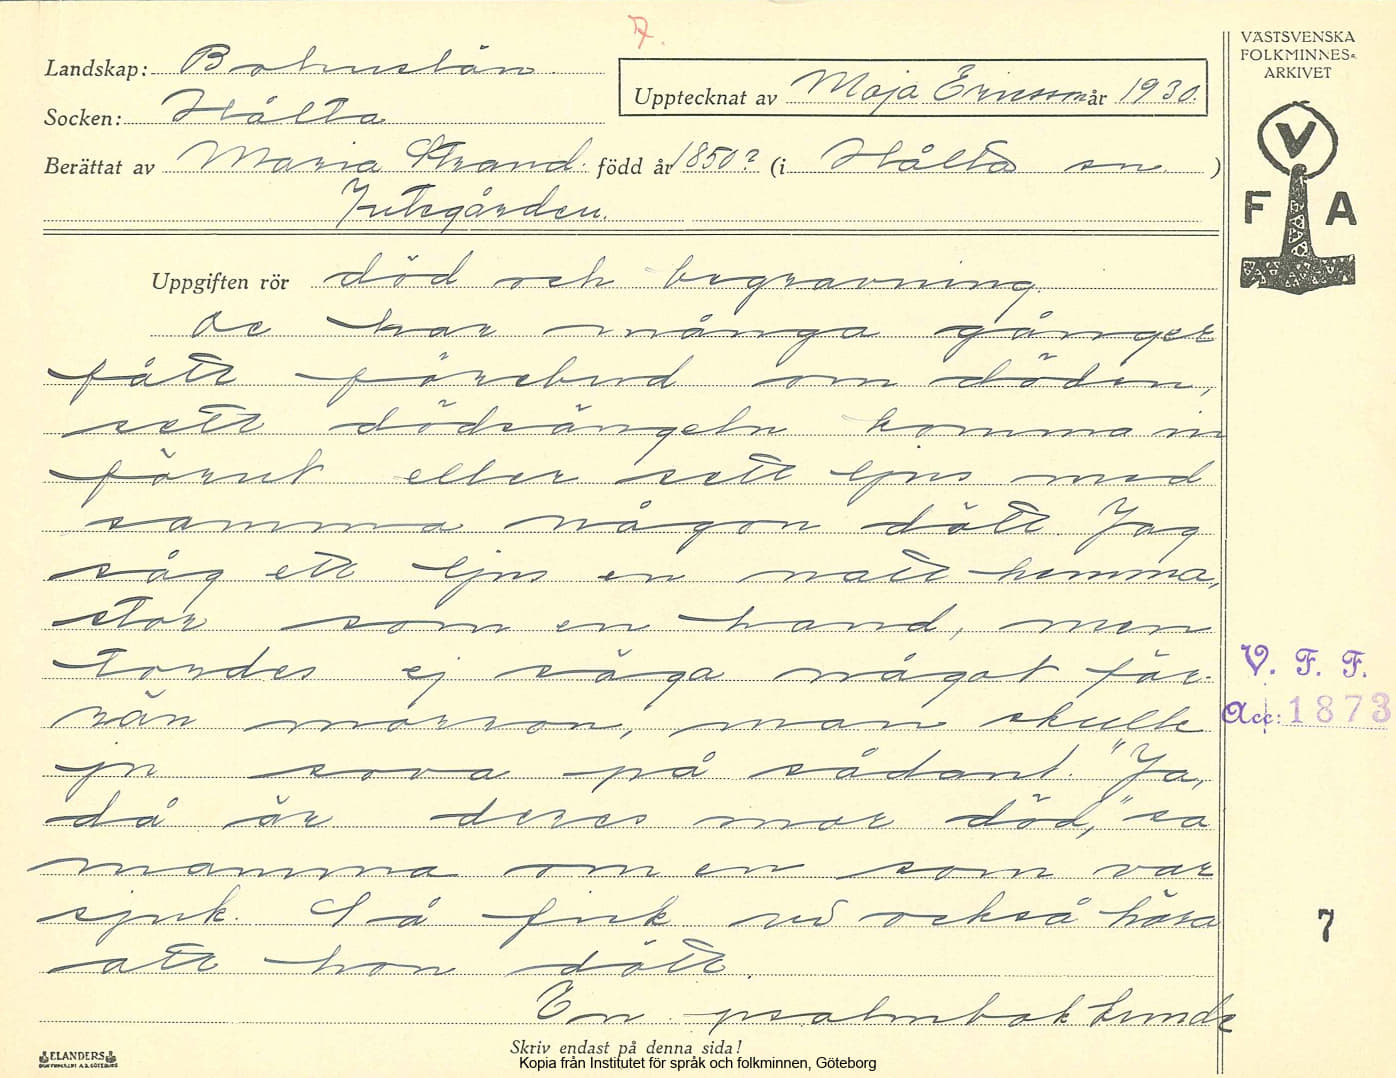 7.
Landskap: Bohuslän
Socken: Hålta
Upptecknat av Maja Ericsson år 1930.
Berättat av Maria Strand. född år 1850? (i Hålta sn. )
Jutegården.
Uppgiften rör död och begravning.
De har många gånger
fått förebud om döden,
sett dödsängeln komma in
förut eller sett ljus med
samma någon dött. Jag
såg ett ljus en natt hemma,
stor som en hand, men
tordes ej säga något för-
rän morron, man skulle
ju sova på sådant. "Ja,
då är deres mor död," sa
mamma om en som var
sjuk. Så fick vi också höra
att hon dött.
En psalmbok kunde
Skriv endast på denna sida!
VÄSTSVENSKA
FOLKMINNES-
ARKIVET
V
F A
V. F. F.
Acc: 1873
7
ELANDERS
Kopia från Institutet för språk och folkminnen, Göteborg